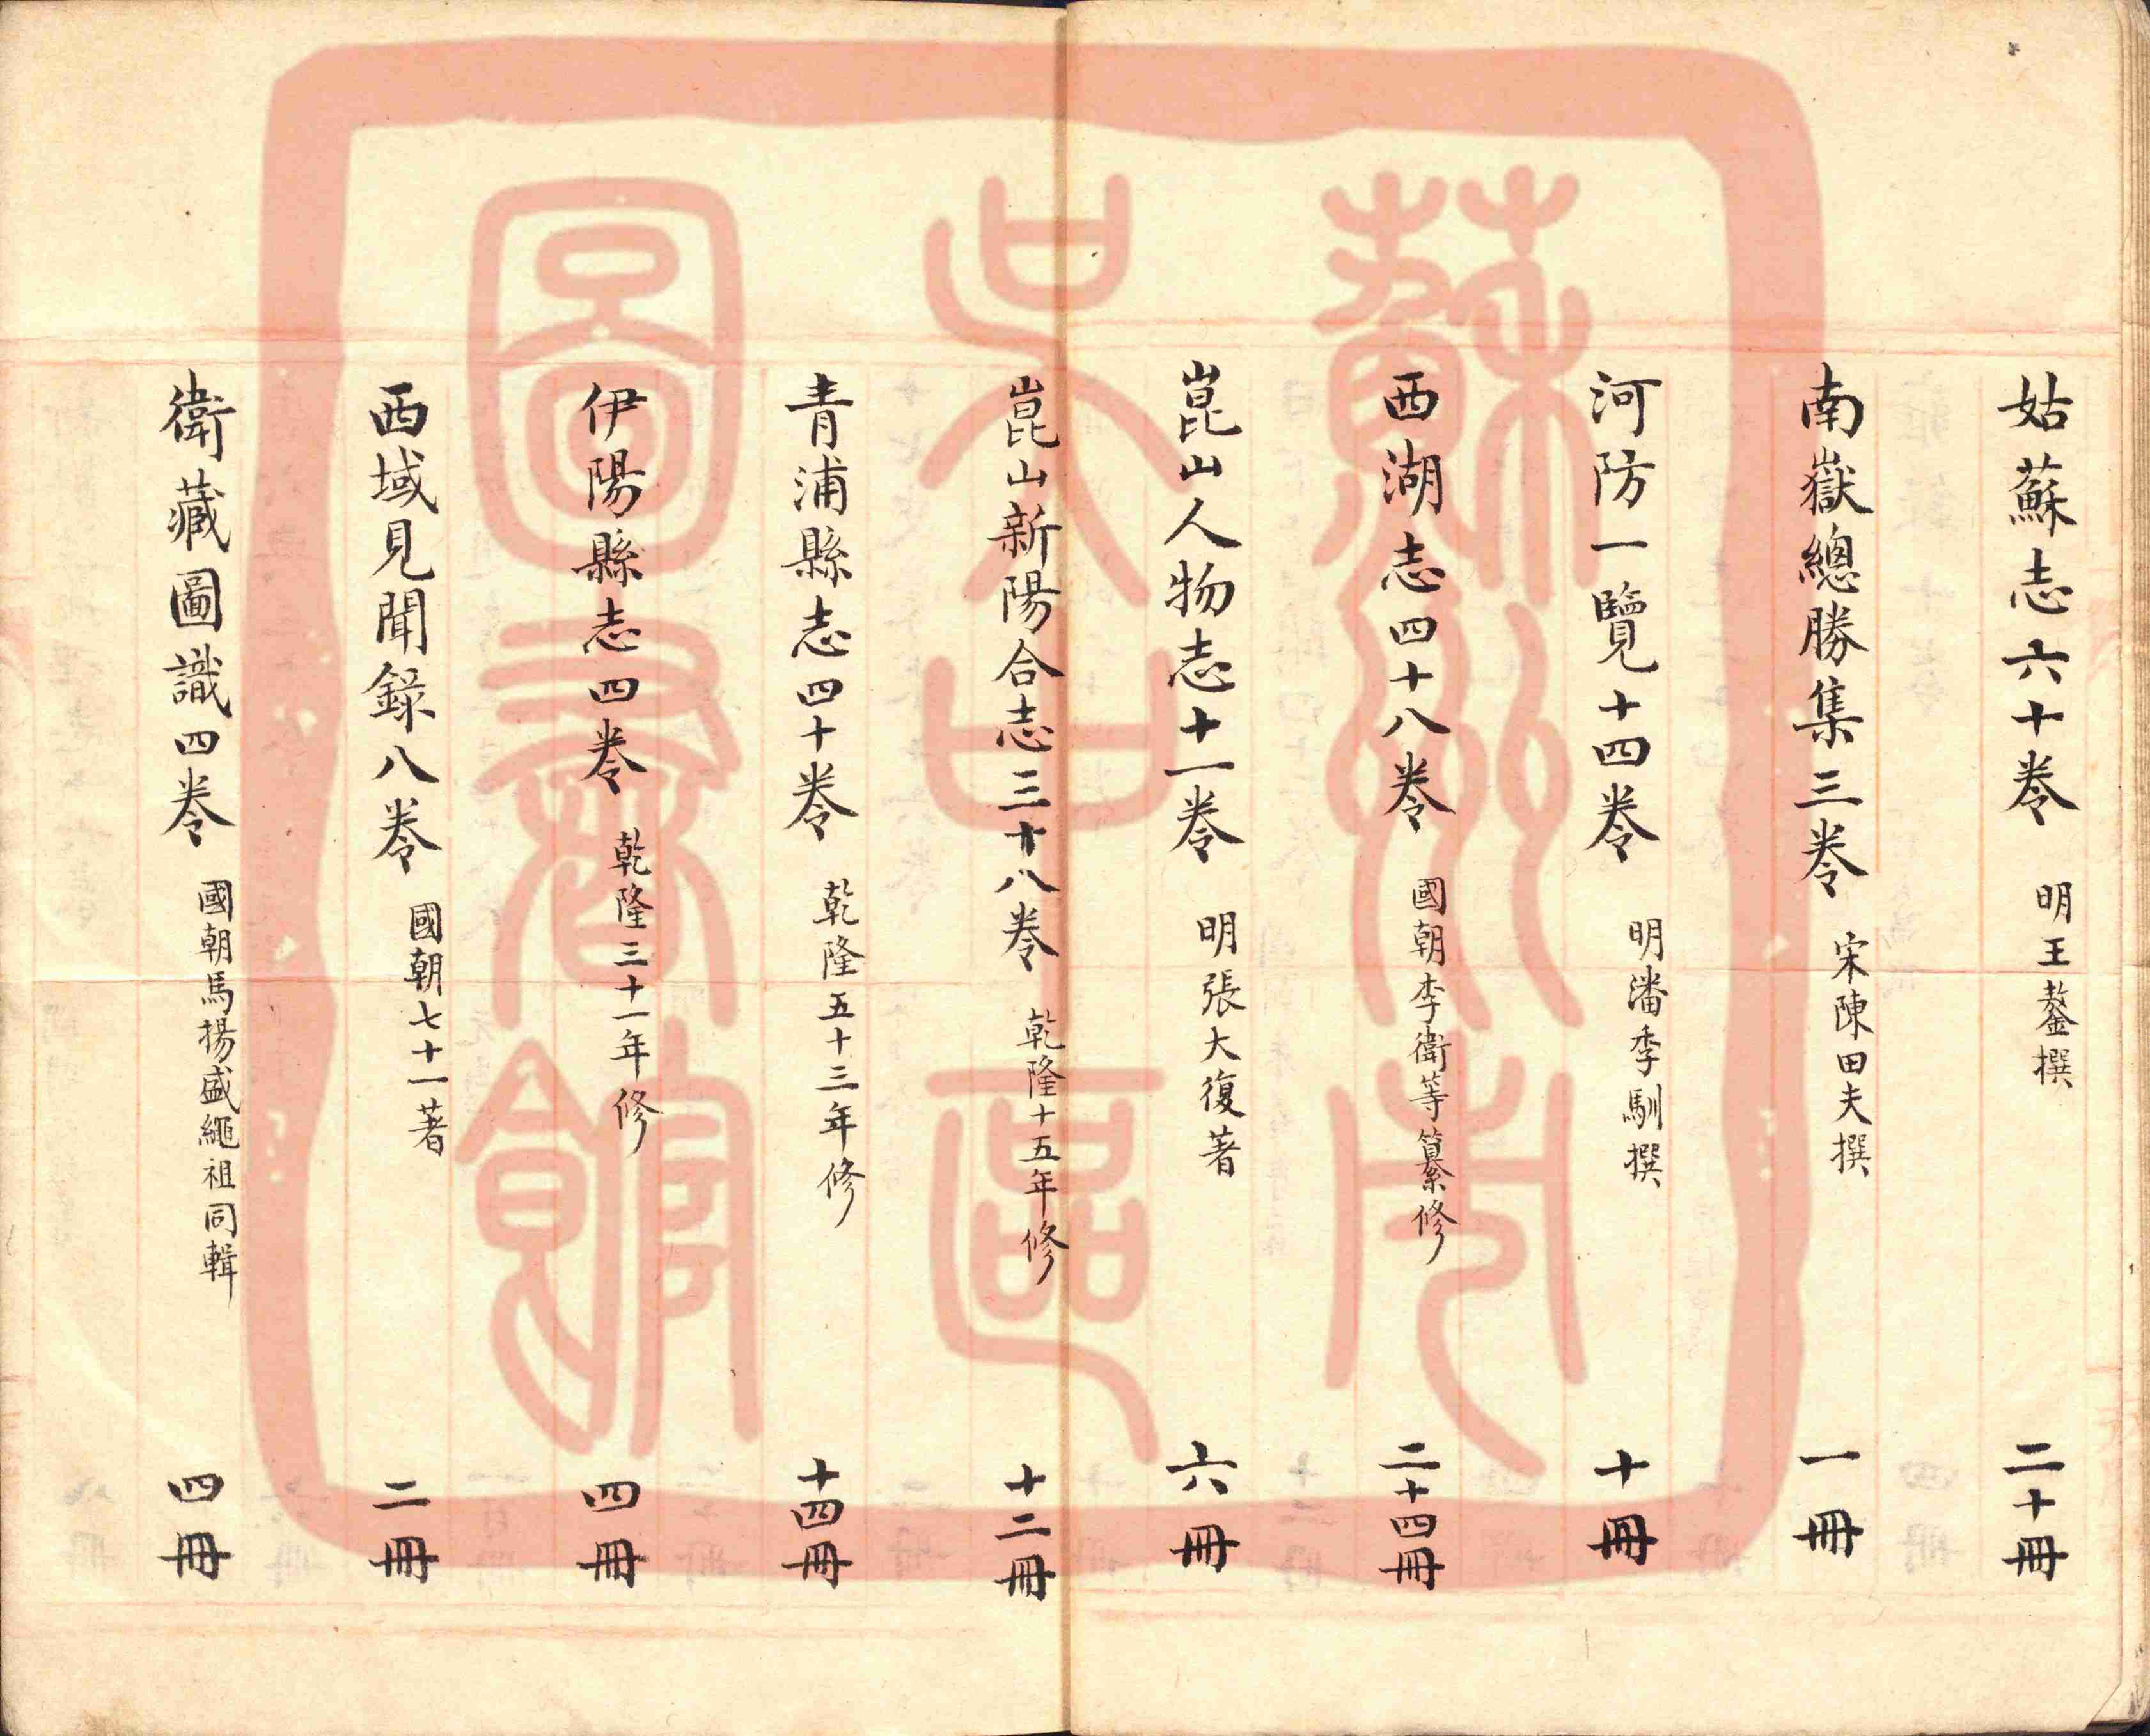 姑蘇志六十卷 明王鏊撰 二十冊
南嶽總勝集三卷 宋陳田夫撰 一冊
河防一覽十四卷 明潘季馴撰 十冊
西湖志四十八卷 國朝李衛等纂修 二十四冊
崑山人物志十一卷 明張大復著 六冊
崑山新陽合志三十八卷 乾隆十五年修 十二冊
青浦縣志四十卷 乾隆五十三年修 十四冊
伊陽縣志四卷 乾隆三十一年修 四冊
西域見聞錄八卷 國朝七十一著 二冊
衛藏圖識四卷 國朝馬揚盛繩祖同輯 四冊
蘇州市
吳中區
圖書館